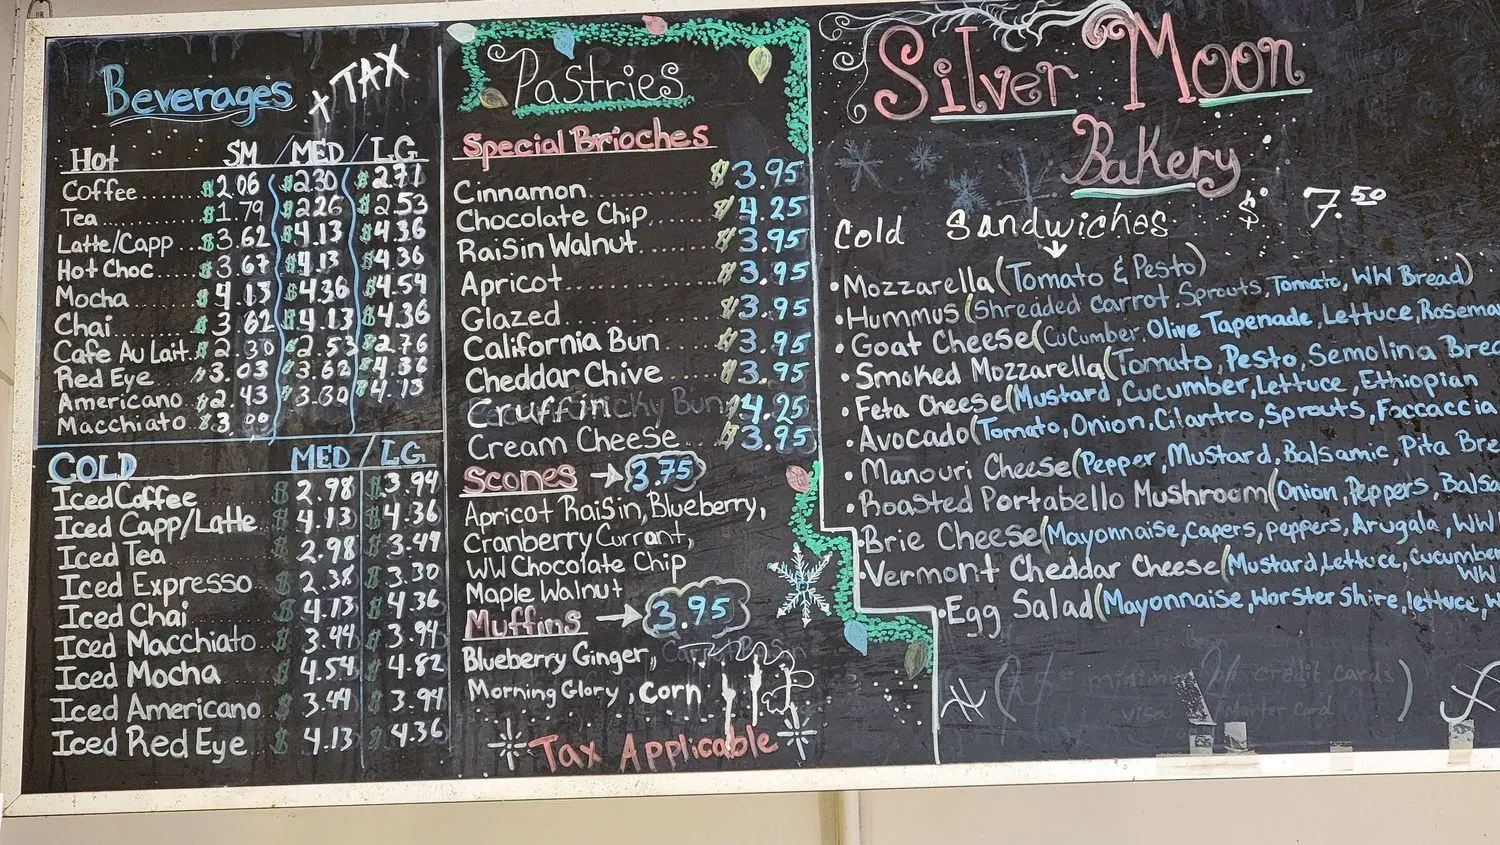 Beverages + TAX
Hot SM / MED / LG
Coffee....... $2.06 $2.30 $2.77
Tea ......... $1.79 $2.26 $2.53
Latte/Capp $3.62 $4.13 $4.36
Hot Choc $3.67 $4.13 $4.36
Mocha ....... $4.13 $4.36 $4.54
Chai ........ $3.62 $4.13 $4.36
Cafe Au Lait.. $2.30 $2.53 $2.76
Red Eye $3.03 $3.62 $4.36
Americano $2.43 $3.30 $4.13
Macchiato $3.
COLD MED / LG
Iced Coffee $2.98 $3.94
Iced Capp/Latte $4.13 $4.36
Iced Tea $2.98 $3.49
Iced Expresso $2.38 $3.30
Iced Chai $4.13 $4.36
Iced Macchiato $3.44 $3.94
Iced Mocha $4.54 $4.82
Iced Americano $3.44 $3.94
Iced Red Eye $4.13 $4.36
Pastries
Special Brioches
Cinnamon ............ $3.95
Chocolate Chip....... $4.25
Raisin Walnut........ $3.95
Apricot.............. $3.95
Glazed .............. $3.95
California Bun ...... $3.95
Cheddar Chive ....... $3.95
Cruffin $4.25
Cream Cheese ... $3.95
Scones → 3.75
Apricot Raisin, Blueberry,
Cranberry Currant,
WW Chocolate Chip
Maple Walnut
Muffins → 3.95
Blueberry Ginger,
Morning Glory, corn
Tax Applicable
Silver Moon
Bakery
Cold Sandwiches $ 7.50
• Mozzarella (Tomato & Pesto)
• Hummus (Shreaded carrot, Sprouts, Tomato, WW Bread)
• Goat Cheese (CuCumber, Olive Tapenade, Lettuce,
• Smoked Mozzarella (Tomato, Pesto, Semolina
• Feta Cheese (Mustard, Cucumber, Lettuce, Ethiopian
• Avocado (Tomato, Onion, Cilantro, Sprouts, Foccaccia
• Manouri Cheese (Pepper, Mustard, Balsamic, Pita
• Roasted Portabello Mushroom (Onion, Peppers,
• Brie Cheese (Mayonnaise, Capers, peppers, Arugala, WW
• Vermont Cheddar Cheese (Mustard, Lettuce, Cucumber
WW
• Egg Salad (Mayonnaise, Worstershire, lettuce,
credit cards)
visa Master Card